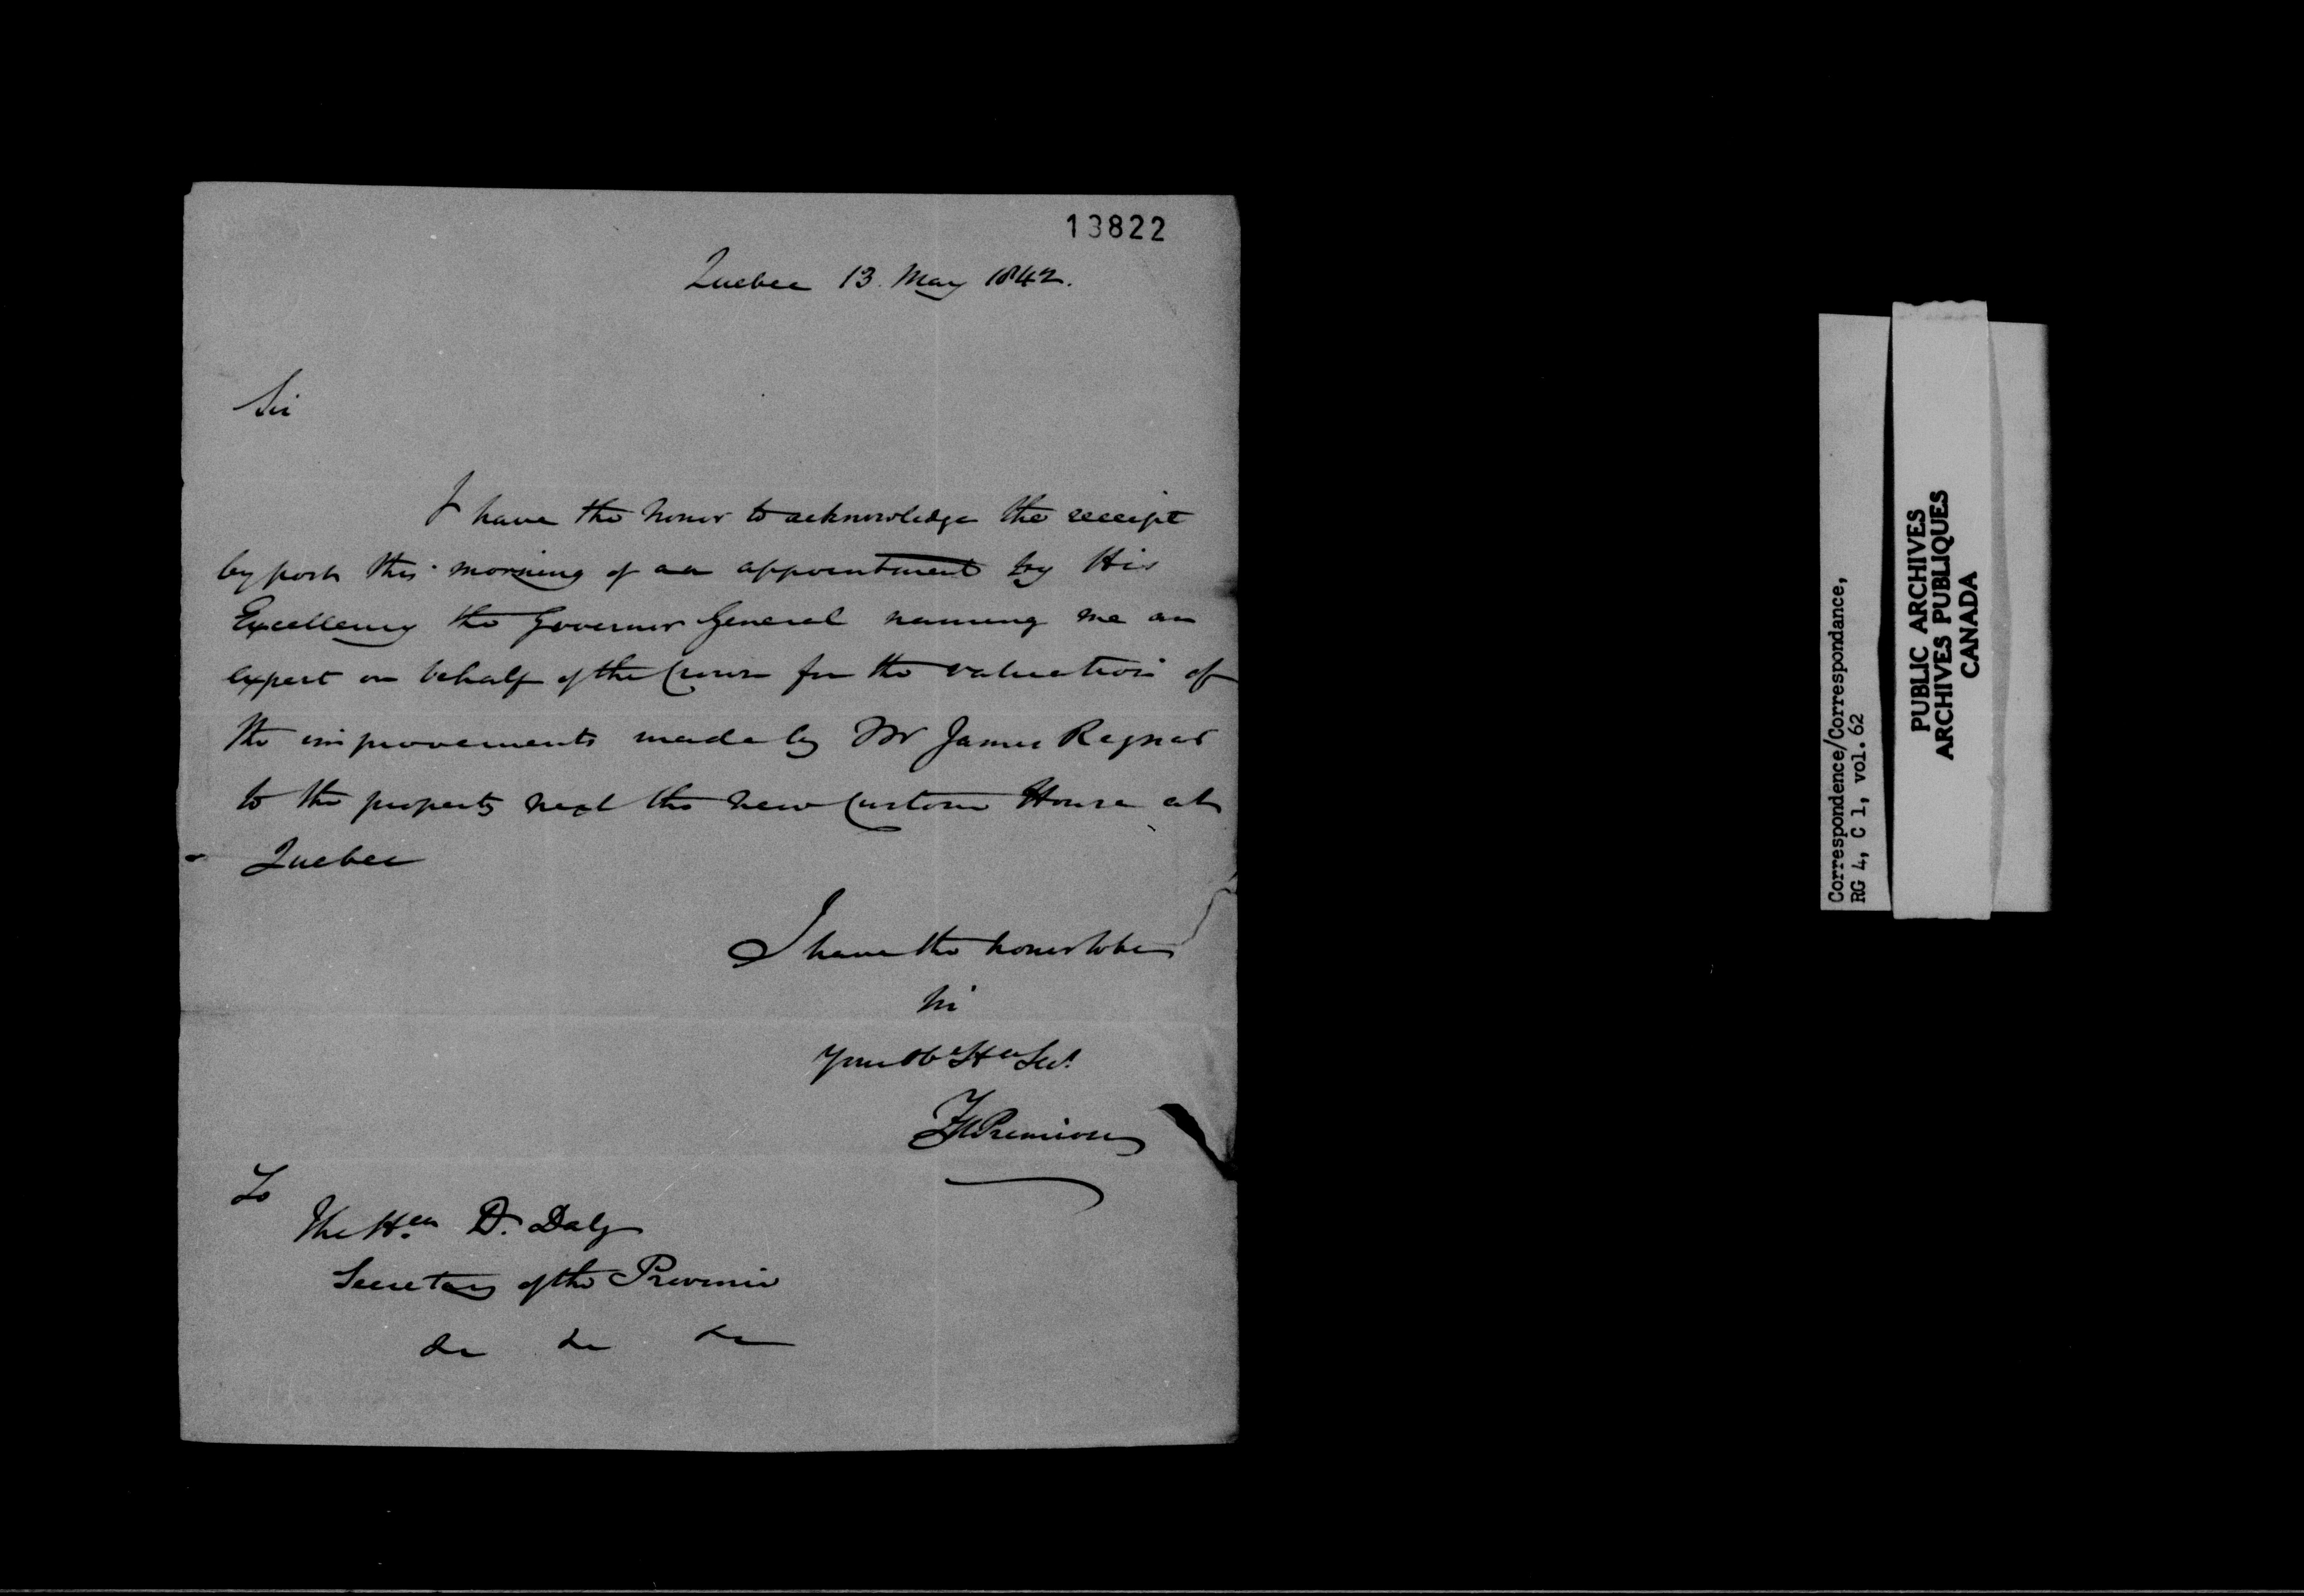 13822
Quebec 13. May 1842.
Sir
I have the honor to acknowledge the receipt
by post this morning of an appointment by His
Excellency the Governor General naming me an
expert on behalf of the Crown for the valuation of
the improvements made by Mr James
to the property next the new Custom House at
Quebec
I have the honor to be
Sir
Your Ob Hu Servt
To
The Hon D. Daly
Secretary of the Province
&c &c &c
Correspondence/Correspondance,
RG 4, C 1, vol. 62
PUBLIC ARCHIVES
ARCHIVES PUBLIQUES
CANADA